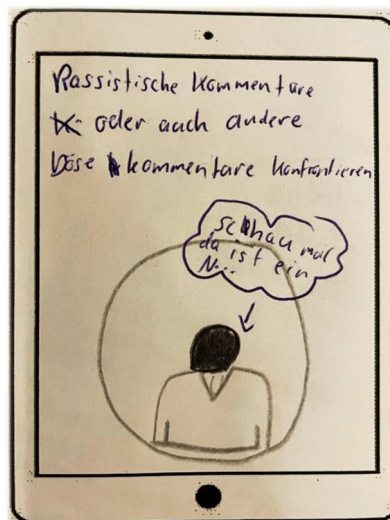 Rassistische Kommentare
oder auch andere
böse kommentare konfrontieren
schau mal
da ist ein
N...